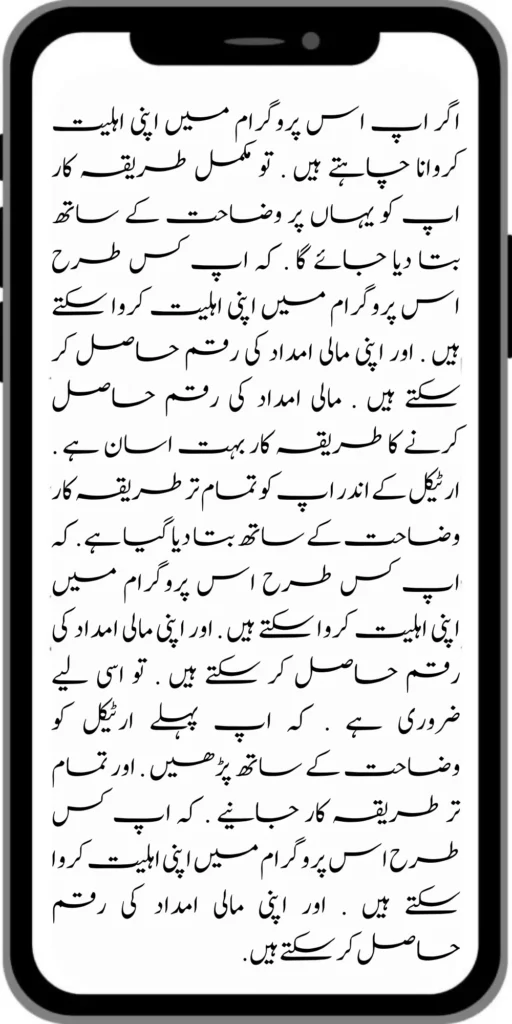 اگر اپ اس پروگرام میں اپنی اہلیت
کروانا چاہتے ہیں . تو مکمل طریقہ کار
اپ کو یہاں پر وضاحت کے ساتھ
بتا دیا جائے گا . کہ اپ کس طرح
اس پروگرام میں اپنی اہلیت کروا سکتے
ہیں . اور اپنی مالی امداد کی رقم حاصل کر
سکتے ہیں . مالی امداد کی رقم حاصل
کرنے کا طریقہ کار بہت اسان ہے .
ارٹیکل کے اندر اپ کو تمام تر طریقہ کار
وضاحت کے ساتھ بتا دیا گیا ہے . کہ
اپ کس طرح اس پروگرام میں
اپنی اہلیت کروا سکتے ہیں . اور اپنی مالی امداد کی
رقم حاصل کر سکتے ہیں . تو اسی لیے
ضروری ہے . کہ اپ پہلے ارٹیکل کو
وضاحت کے ساتھ پڑھیں . اور تمام
تر طریقہ کار جانیے . کہ اپ کس
طرح اس پروگرام میں اپنی اہلیت کروا
سکتے ہیں . اور اپنی مالی امداد کی رقم
حاصل کر سکتے ہیں .